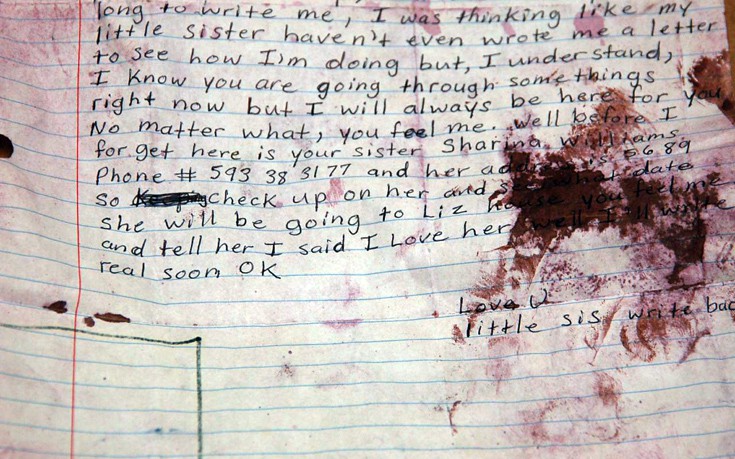 long to write me, I was thinking like my
little sister haven't even wrote me a letter
to see how I'm doing but, I understand,
I know you are going through some things
right now but I will always be here for you
No matter what, you feel me. Well before I
forget here is your sister Sharina Williams
Phone # 593 38 3177 and her address is 5689
so check up on her and see what date
she will be going to Liz house you feel me
and tell her I said I Love her well I'll write
real soon OK
Love U
little sis write bac